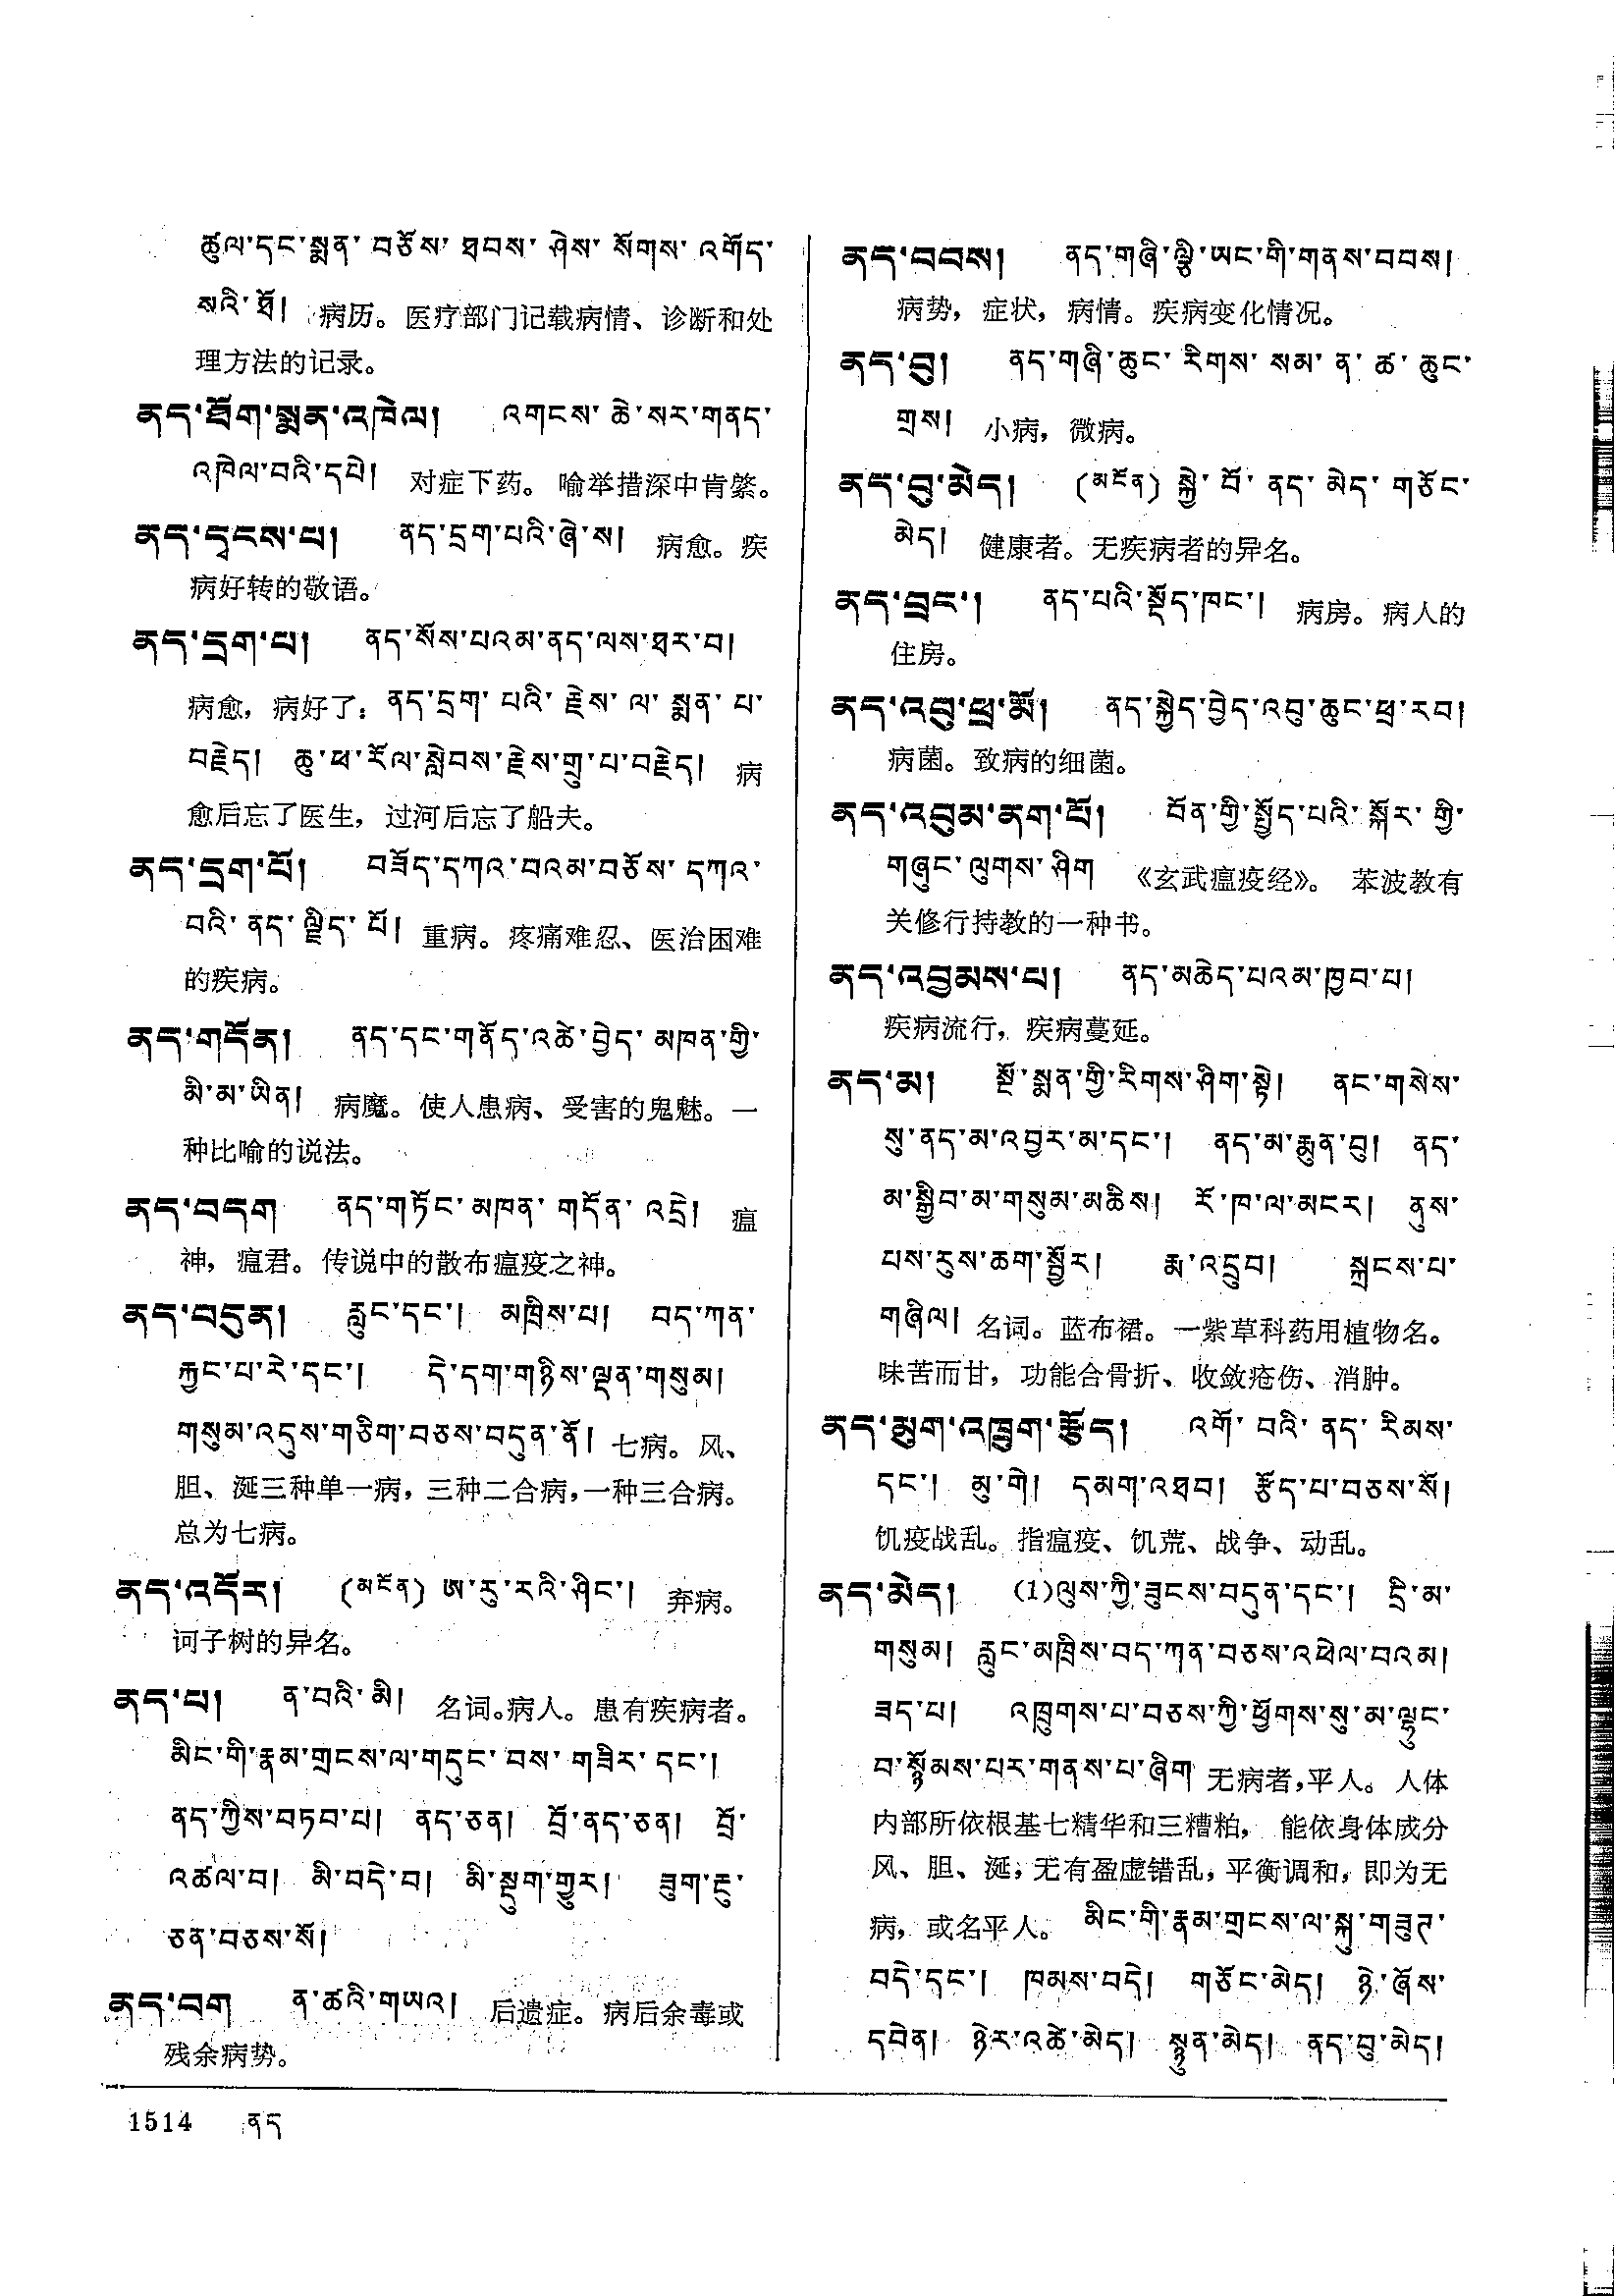 ཚུལ་དང་སྨན་བཅོས་ཐབས་ཤེས་སོགས་འགོད་
སའི་ཐོ། 病历。医疗部门记载病情、诊断和处
理方法的记录。
ནད་ཐོག་སྨན་འཁེལ། འགངས་ཆེ་སར་གནད་
འཁེལ་བའི་དཔེ། 对症下药。喻举措深中肯綮。
ནད་དྭངས་པ། ནད་དྲག་པའི་ཞེ་ས། 病愈。疾
病好转的敬语。
ནད་དྲག་པ། ནད་སོས་པའམ་ནད་ལས་ཐར་བ།
病愈，病好了：ནད་དྲག་པའི་རྗེས་ལ་སྨན་པ་
བརྗེད། ཆུ་ཕ་རོལ་སླེབས་རྗེས་གྲུ་པ་བརྗེད། 病
愈后忘了医生，过河后忘了船夫。
ནད་དྲག་པོ། བཟོད་དཀའ་བའམ་བཅོས་དཀའ་
བའི་ནད་ལྗིད་པོ། 重病。疼痛难忍、医治困难
的疾病。
ནད་གདོན། ནད་དང་གནོད་འཚེ་བྱེད་མཁན་གྱི་
མི་མ་ཡིན། 病魔。使人患病、受害的鬼魅。一
种比喻的说法。
ནད་བདག ནད་གཏོང་མཁན་གདོན་འདྲེ། 瘟
神，瘟君。传说中的散布瘟疫之神。
ནད་བདུན། རླུང་དང་། མཁྲིས་པ། བད་ཀན་
རྐྱང་པ་རེ་དང་། དེ་དག་གཉིས་ལྡན་གསུམ།
གསུམ་འདུས་གཅིག་བཅས་བདུན་ནོ། 七病。风、
胆、涎三种单一病，三种二合病，一种三合病。
总为七病。
ནད་འདོར། (མངོན) ཨ་རུ་རའི་ཤིང་། 弃病。
诃子树的异名。
ནད་པ། ན་བའི་མི། 名词。病人。患有疾病者。
མིང་གི་རྣམ་གྲངས་ལ་གདུང་བས་གཟིར་དང་།
ནད་ཀྱིས་བཏབ་པ། ནད་ཅན། བྲོ་ནད་ཅན། བྲོ་
འཚལ་བ། མི་བདེ་བ། མི་སྡུག་གྱུར། ཟུག་རྔུ་
ཅན་བཅས་སོ།
ནད་བག ན་ཚའི་གཡའ། 后遗症。病后余毒或
残余病势。
ནད་བབས། ནད་གཞི་ལྕི་ཡང་གི་གནས་བབས།
病势，症状，病情。疾病变化情况。
ནད་བུ། ནད་གཞི་ཆུང་རིགས་སམ་ན་ཚ་ཆུང་
གྲས། 小病，微病。
ནད་བུ་མེད། (མངོན) སྐྱེ་བོ་ནད་མེད་གཅོང་
མེད། 健康者。无疾病者的异名。
ནད་བྲང་། ནད་པའི་སྡོད་ཁང་། 病房。病人的
住房。
ནད་འབུ་ཕྲ་མོ། ནད་སྐྱེད་བྱེད་འབུ་ཆུང་ཕྲ་རབ།
病菌。致病的细菌。
ནད་འབུམ་ནག་པོ། བོན་གྱི་སྤྱོད་པའི་སྐོར་གྱི་
གཞུང་ལུགས་ཤིག 《玄武瘟疫经》。苯波教有
关修行持教的一种书。
ནད་འབྱམས་པ། ནད་མཆེད་པའམ་ཁྱབ་པ།
疾病流行，疾病蔓延。
ནད་མ། སྔོ་སྨན་གྱི་རིགས་ཤིག་སྟེ། ནང་གསེས་
སུ་ནད་མ་འབྱར་མ་དང་། ནད་མ་རྒུན་བུ། ནད་
མ་སྒྲིབ་མ་གསུམ་མཆིས། རོ་ཁ་ལ་མངར། ནུས་
པས་རུས་ཆག་སྦྱོར། རྨ་འདྲུབ། སྐྲངས་པ་
གཞིལ། 名词。蓝布裙。一紫草科药用植物名。
味苦而甘，功能合骨折、收敛疮伤、消肿。
ནད་མུག་འཁྲུག་རྩོད། འགོ་བའི་ནད་རིམས་
དང་། མུ་གེ། དམག་འཐབ། རྩོད་པ་བཅས་སོ།
饥疫战乱。指瘟疫、饥荒、战争、动乱。
ནད་མེད། (1)ལུས་ཀྱི་ཟུངས་བདུན་དང་། དྲི་མ་
གསུམ། རླུང་མཁྲིས་བད་ཀན་བཅས་འཕེལ་བའམ།
ཟད་པ། འཁྲུགས་པ་བཅས་ཀྱི་ཕྱོགས་སུ་མ་ལྷུང་
བ་སྙོམས་པར་གནས་པ་ཞིག 无病者，平人。人体
内部所依根基七精华和三糟粕，能依身体成分
风、胆、涎，无有盈虚错乱，平衡调和，即为无
病，或名平人。མིང་གི་རྣམ་གྲངས་ལ་སྐུ་གཟུཊ་
བདེ་དང་། ཁམས་བདེ། གཅོང་མེད། ཉེ་ཞོས་
དབེན། ཉེར་འཚེ་མེད། སྙུན་མེད། ནད་བུ་མེད།
1514 ནད